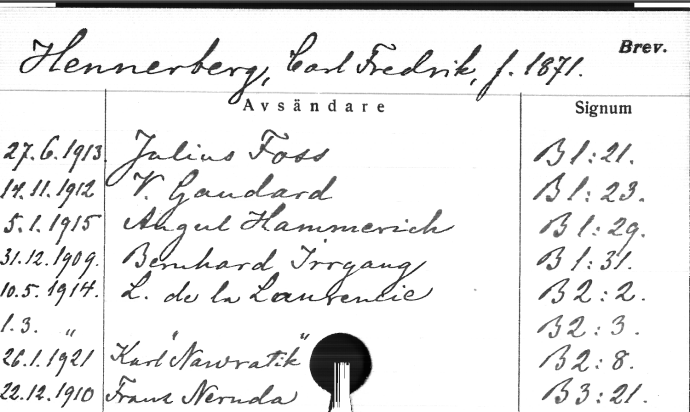 Hennerberg, Carl Fredrik, f. 1871.
Brev.
Avsändare Signum
27.6.1913. Julius Foss B1:21.
14.11.1912 V. Gandard B1:23.
5.1.1915 Angul Hammerich B1:29.
31.12.1909. Bernhard Irrgang B1:31.
10.5.1914. L. de la Laurencie B2:2.
1.3. „ " " B2:3.
26.1.1921 Karl Nawratik B2:8.
22.12.1910 Franz Neruda B3:21.